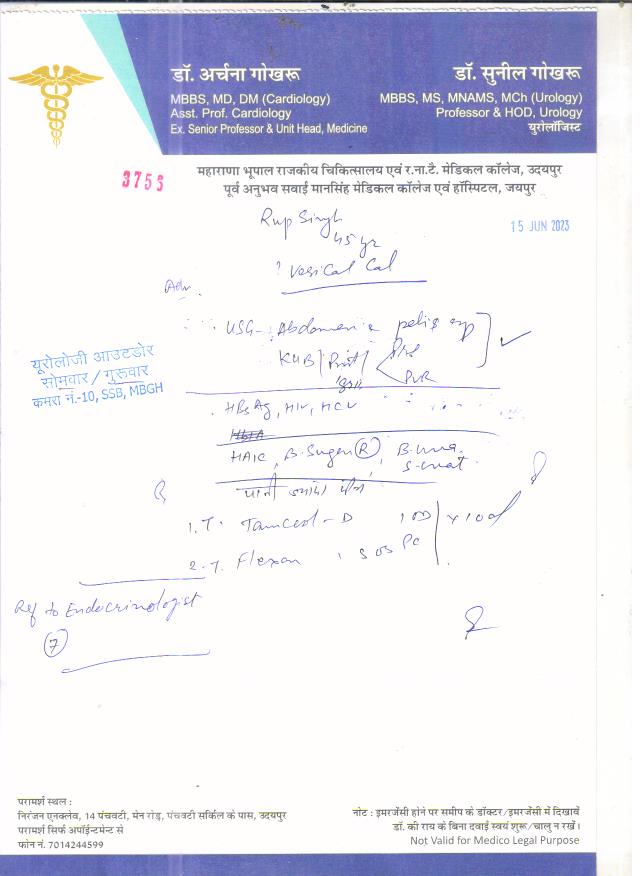 डॉ. अर्चना गोखरू
MBBS, MD, DM (Cardiology)
Asst. Prof. Cardiology
Ex. Senior Professor & Unit Head, Medicine
डॉ. सुनील गोखरू
MBBS, MS, MNAMS, MCh (Urology)
Professor & HOD, Urology
यूरोलॉजिस्ट
महाराणा भूपाल राजकीय चिकित्सालय एवं र.ना.टै. मेडिकल कॉलेज, उदयपुर
पूर्व अनुभव सवाई मानसिंह मेडिकल कॉलेज एवं हॉस्पिटल, जयपुर
3753
15 JUN 2023
Rup Singh
45 yr
? Vesical Cal
Adv.
USG- Abdomen
KUB
PVR
यूरोलॉजी आउटडोर
सोमवार / गुरूवार
कमरा नं.-10, SSB, MBGH
HBsAg, HIV, HCV
B. Sugar (R)
पानी ज्यादा
1. T.
2. T. Flexon 1 SOS
Ref to Endocrinologist
7
परामर्श स्थल :
निरंजन एनक्लेव, 14 पंचवटी, मेन रोड़, पंचवटी सर्किल के पास, उदयपुर
परामर्श सिर्फ अपॉईन्टमेन्ट से
फोन नं. 7014244599
नोट : इमरजेंसी होने पर समीप के डॉक्टर/इमरजेंसी में दिखावें
डॉ. की राय के बिना दवाई स्वयं शुरू/चालु न रखें।
Not Valid for Medico Legal Purpose